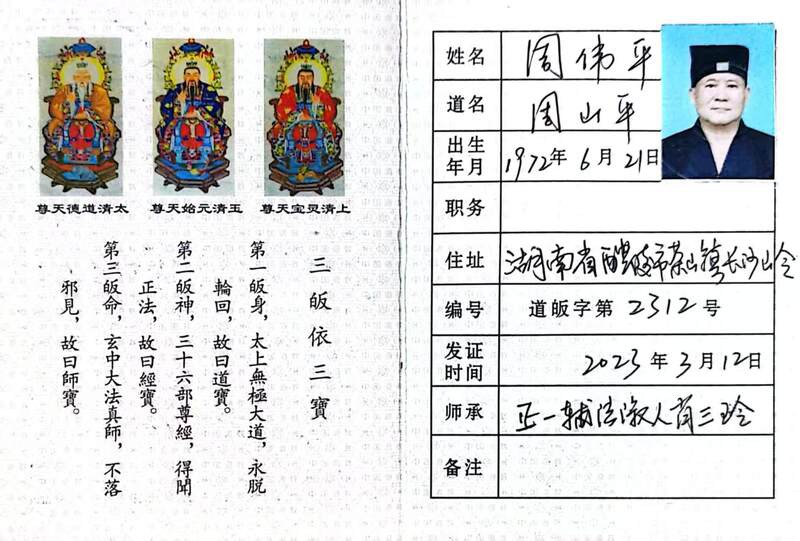 上清灵宝天尊
玉清元始天尊
太清道德天尊
三皈依三寶
第一皈身，太上無極大道，永脱
輪回，故曰道寶。
第二皈神，三十六部尊經，得聞
正法，故曰經寶。
第三皈命，玄中大法真師，不落
邪見，故曰師寶。
姓名 周伟平
道名 周山平
出生年月 1972年6月21日
职务
住址 湖南省醴陵市茶山镇长沙岭
编号 道皈字第2312号
发证时间 2023年3月12日
师承 正一辅法 人肖三玲
备注